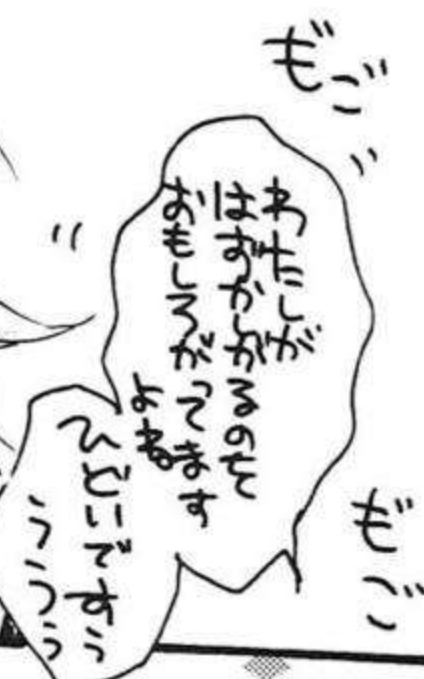 もご
わたしが
はずかしがるのを
おもしろがってます
よね
ひどいですぅ
うぅぅ
もご